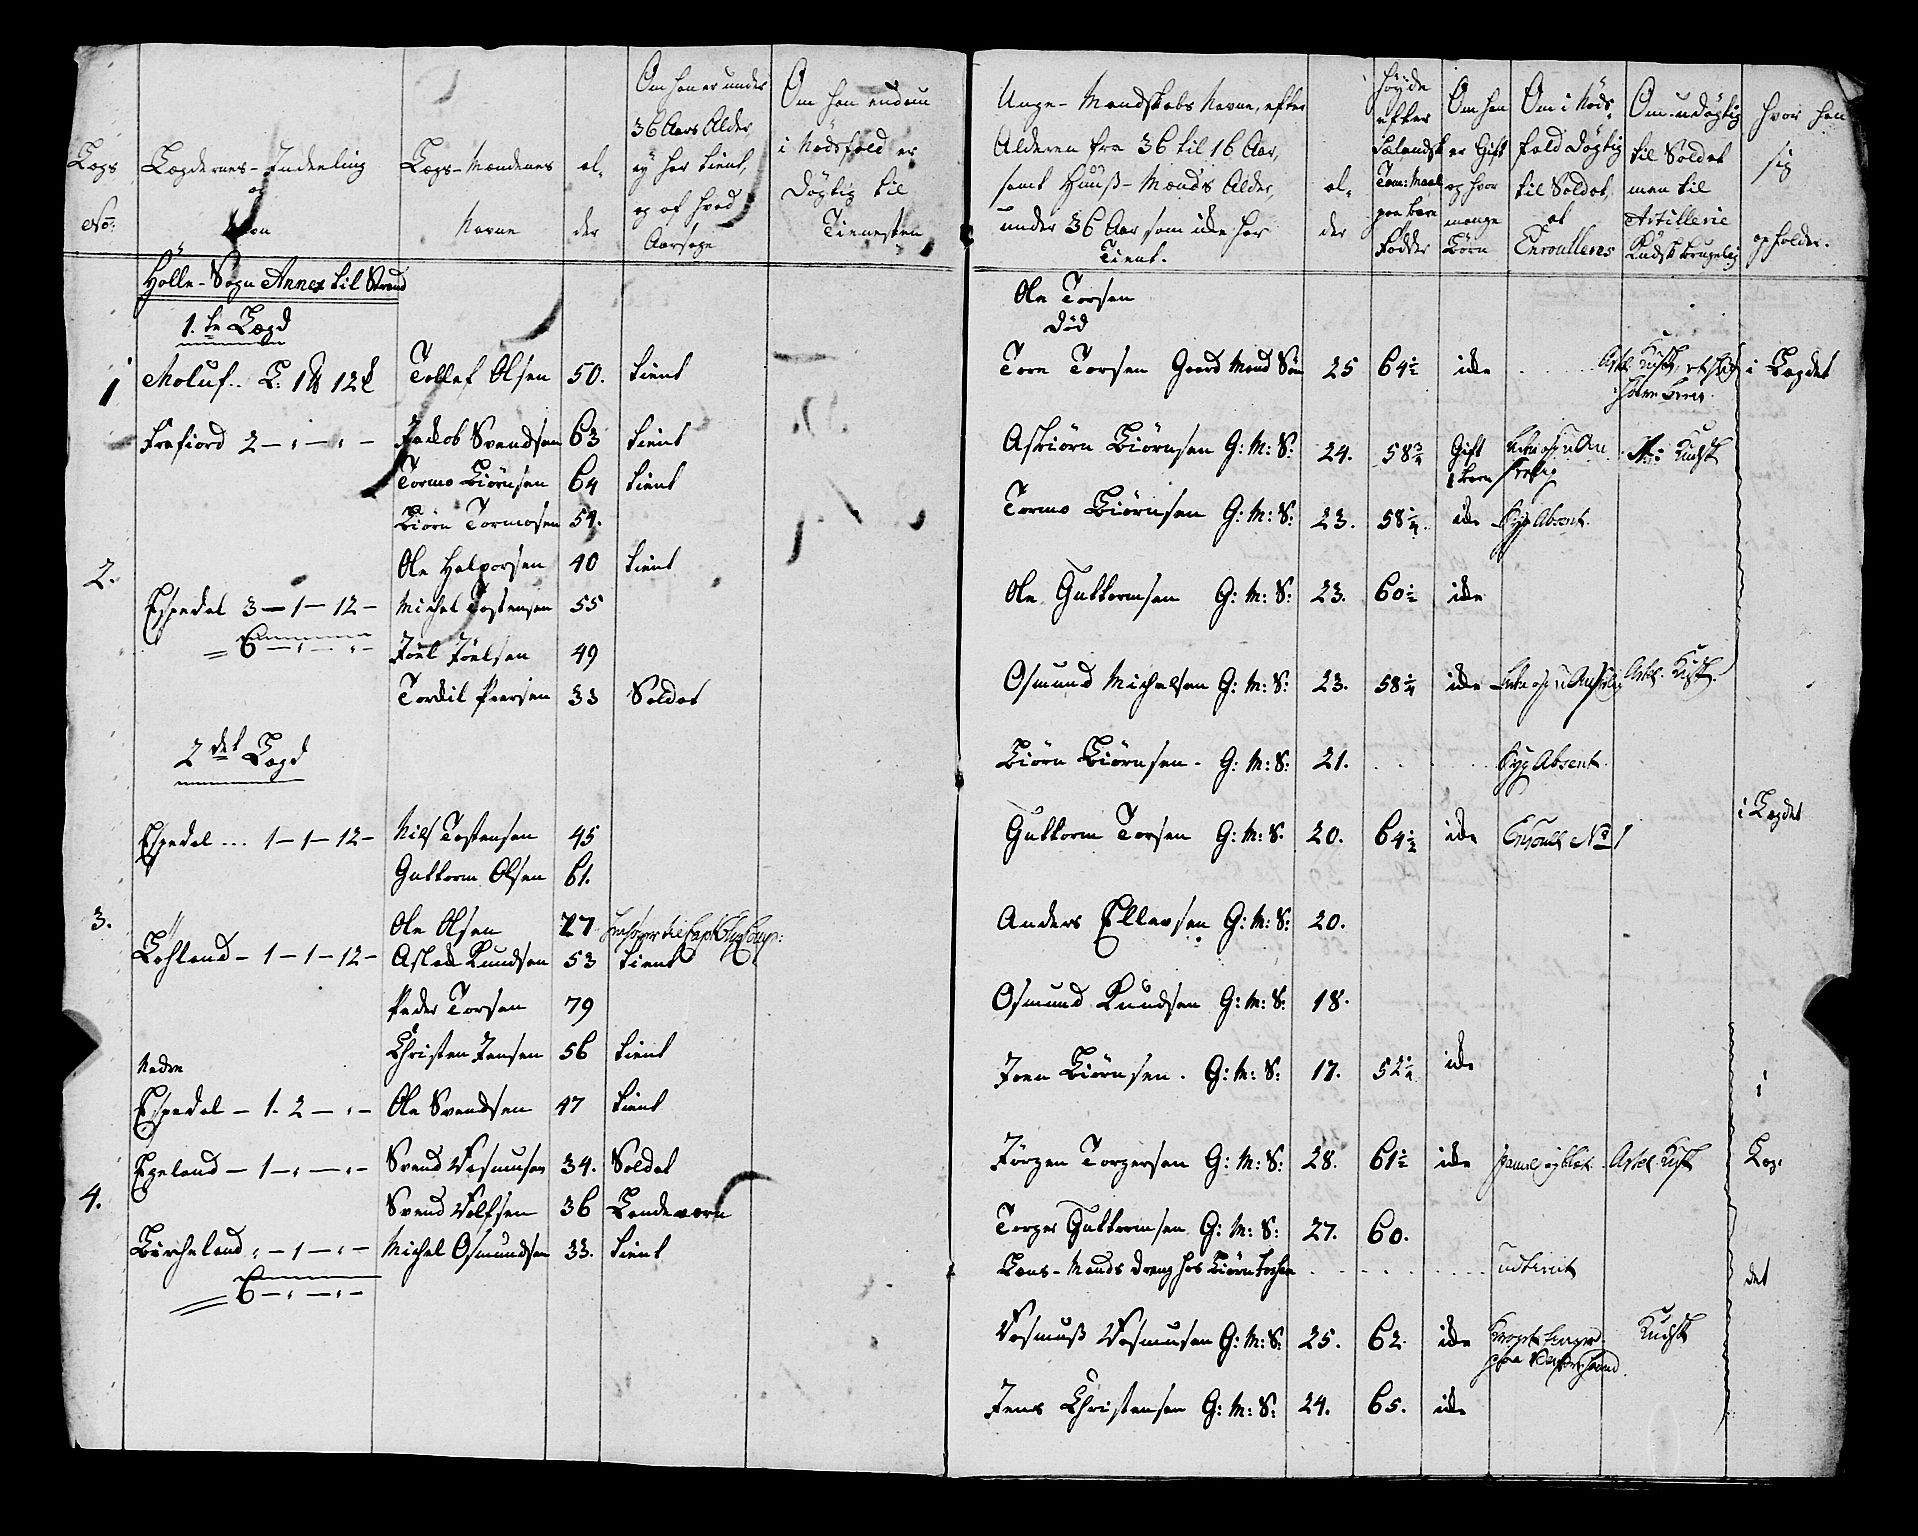 Lægs No:
Lægdernes Inddeling og Navn
Lægs-Mændenes Navne
al-der
Om han er under 36 Aars Alder, ey har tient, og af hvad Aarsage
Om han endnu i Nødsfald er Dögtig til Tienesten
Unge-Mandskabs Navne, efter Alderen fra 36 til 16 Aar, samt Huuß-Mænds Alder, under 36 Aar som icke har Tient.
al-der
Høyde efter Sælandsk Tom: Maal paa bare Födder
Om han er Gift og hvor mange Börn
Om i Nöds-fald Dögtig til Soldat, at Enroulleres
Om udögtig til Soldat men til Artillerie Kudsk brugelig
Hvor han sig opholder.
Hölle-Sogn Annex til Strand
1.te Lægd
Ole Torsen
Död
1 Moluf.. L: 1 12 Tollef Olsen 50. tient
Tore Torsen Gaard Mand Sön 25 64½ icke i Lægdet
Frafiord 2 Jackob Svendsen 63 tient
Asbiörn Biörnsen G: M: S: 24. 58¾ Gift 1 barn Kudsk
Tormo Biörnsen 64 tient
Tormo Biörnsen G: M: S: 23. 58¼ icke Syg Absent.
Biörn Tormosen 54.
2. Ole Halvorsen 40 tient
Ole Guttormsen G: M: S: 23. 60½ icke
Espedal 3-1-12- Michel Tostensen 55
6 Joel Joelsen 49
Osmund Michelsen G: M: S: 23. 58¼ icke Artl. Kudsk
Torckil Peersen 33 Soldat
2det Lægd
Biörn Biörnsen G: M: S: 21. Syg Absent
Espedal ... 1-1-12- Niels Tostensen 45
Guttorm Torsen G: M: S: 20. 64½ icke Enroul No 1 i Lægdet
Guttorm Olsen 61.
3. Ole Olsen 27
Anders Ellevsen G: M: S: 20.
Löhland - 1-1-12- Aslack Knudsen 53 tient
Peder Torsen 79
Osmund Knudsen G: M: S: 18.
Christen Jensen 56 tient
Joen Biörnsen. G: M: S: 17. 52¼ icke
Nedre
Espedal - 1. 2 Ole Svendsen 47 tient
i
Egeland - 1 Svend Rasmusen 34. Soldat
Jörgen Torgersen G: M: S: 28. 61½ icke Artl. Kudsk Læg-
4. Svend Rolfsen 36 Landeværn
Torger Guttormsen G: M: S: 27. 60.
Birckeland - 1 Michel Osmundsen 33. tient
Lens-Mands dreng hos Biörn udtient det
6
Rasmuß Rasmusen G: M: S: 25. 62. icke Kudsk
Jens Christensen G: M: S: 24. 65. icke